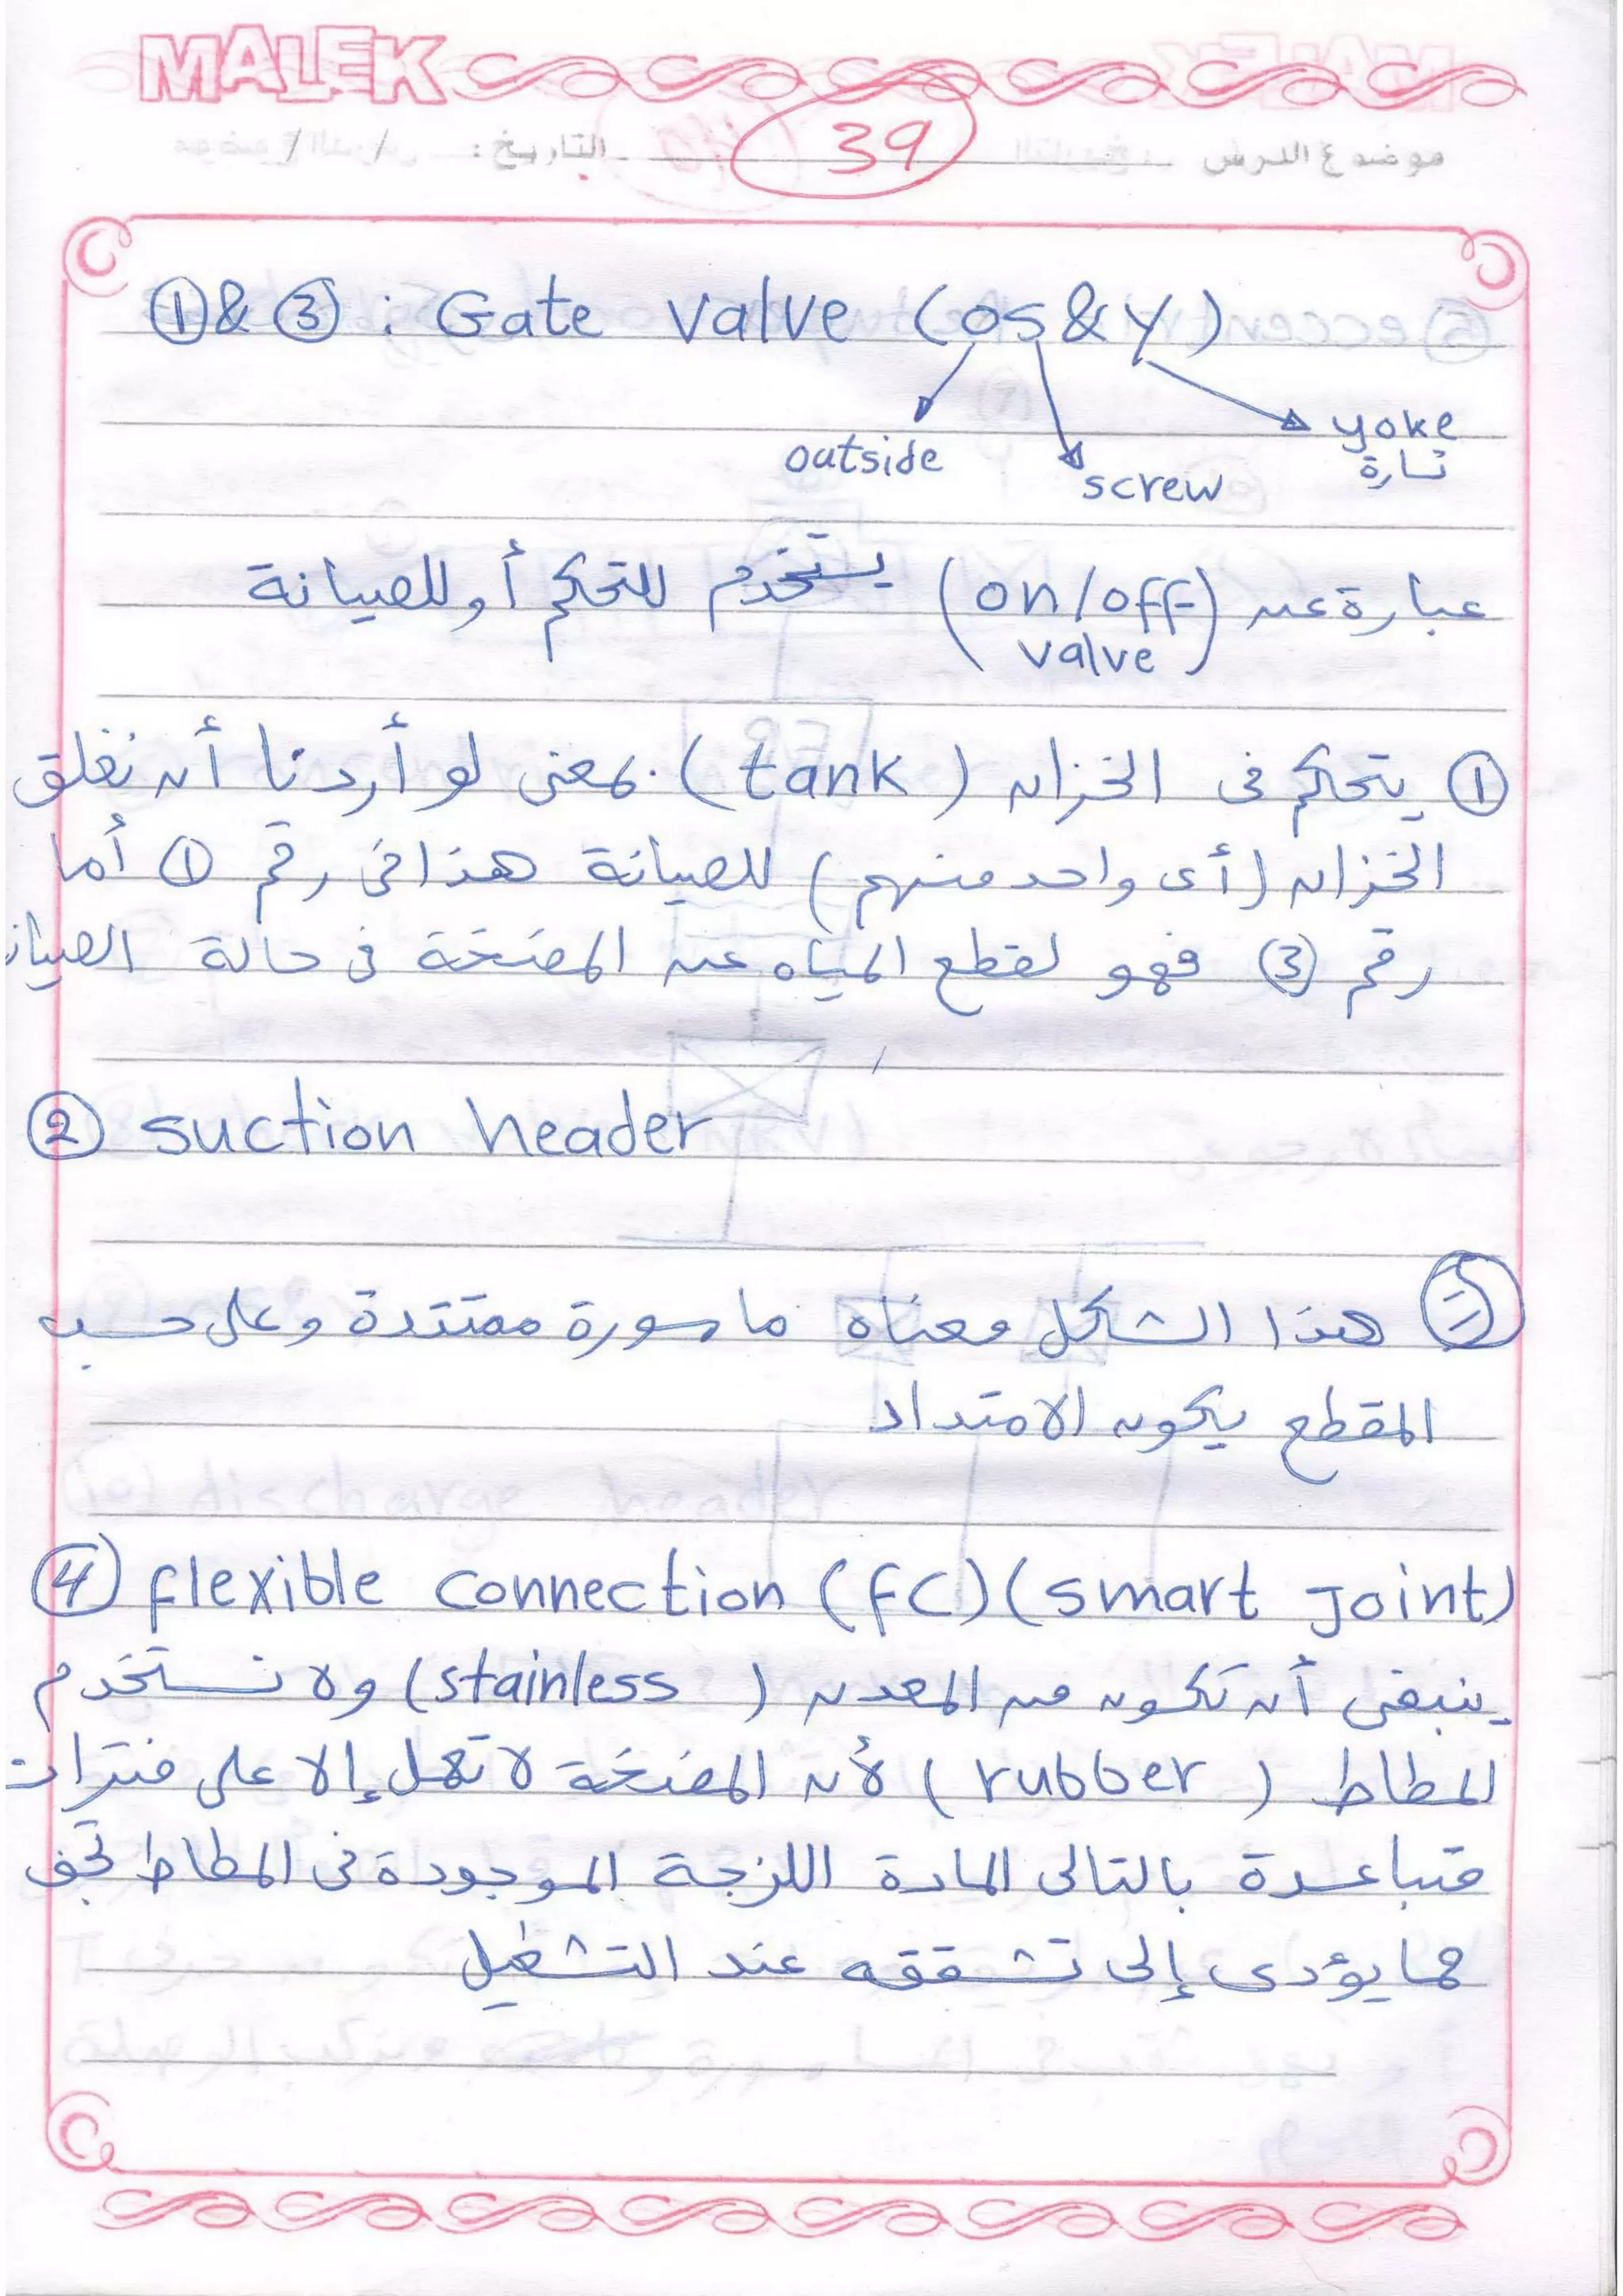 MALEK
موضوع الدرس : 39 التاريخ : / /
① & ③ : Gate valve (os & y)
yoke
outside
نارة
screw
عبارة عن (on/off valve) يستخدم للتحكم أو للصيانة
① يتحكم فى الخزان (tank) بمعنى لو أردنا أن نغلق
الخزان (أى واحد منهم) للصيانة هذا فى رقم ① أما
رقم ③ فهو لقطع المياه عن المضخة فى حالة الصيان
② suction header
هذا الشكل معناه ماسورة ممتدة وعلى حسب
المقطع يكون الامتداد
④ flexible connection (FC) (smart Joint)
ينبغى أن تكون من المعدن (stainless) ولا نستخدم
المطاط (rubber) لأن المضخة لا تعمل إلا على فترات
متباعدة بالتالى المادة اللزجة الموجودة فى المطاط تجف
مما يؤدى إلى تشققه عند التشغيل